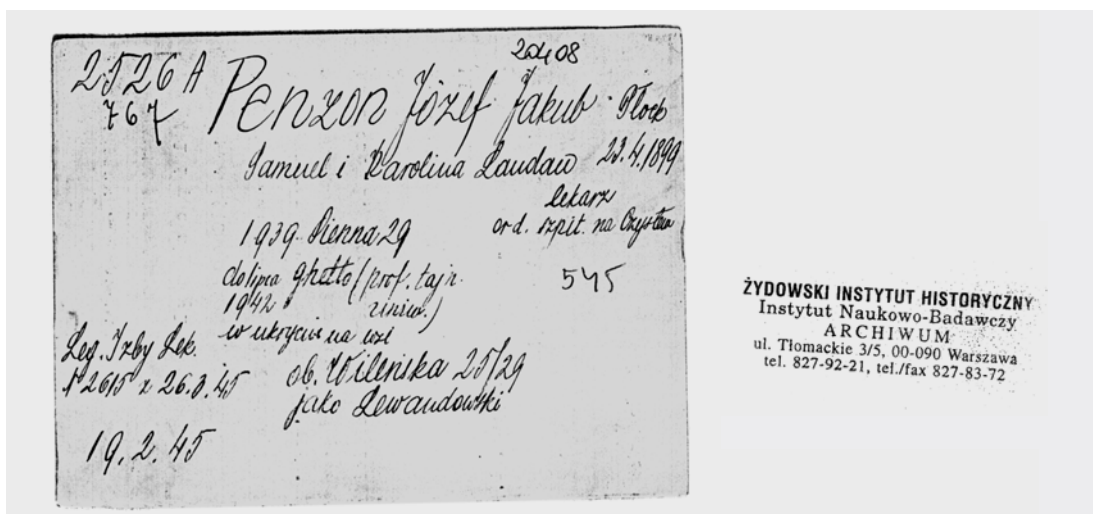 20408
2526 A
767
Penzon Józef Jakub Płock
Samuel i Karolina Landau 23.4.1899
lekarz
1939 Sienna 29 ord. szpit. na Czystem
do lipca ghetto (prof. tajn. 545
1942 uniw.)
w ukryciu na wsi
Leg. Izby Lek.
N 2615 z 26.3.45 ob. Wileńska 25/29
jako Lewandowski
19.2.45
ŻYDOWSKI INSTYTUT HISTORYCZNY
Instytut Naukowo-Badawczy
ARCHIWUM
ul. Tłomackie 3/5, 00-090 Warszawa
tel. 827-92-21, tel./fax 827-83-72